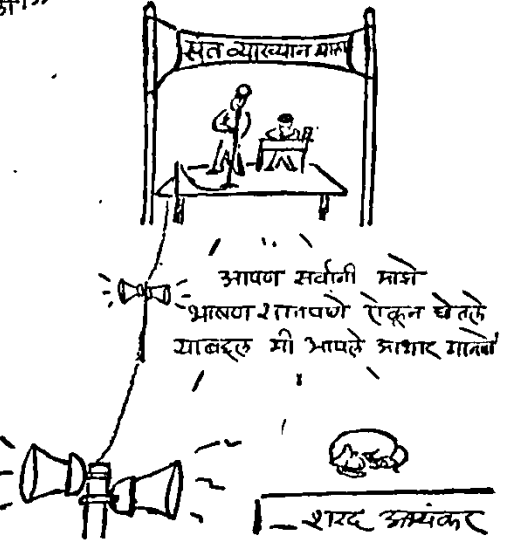 संत व्याख्यान माला
आपण सर्वांनी माझे
भाषण शांतपणे ऐकून घेतले
याबद्दल मी आपले आभार मानतो
शरद अभ्यंकर